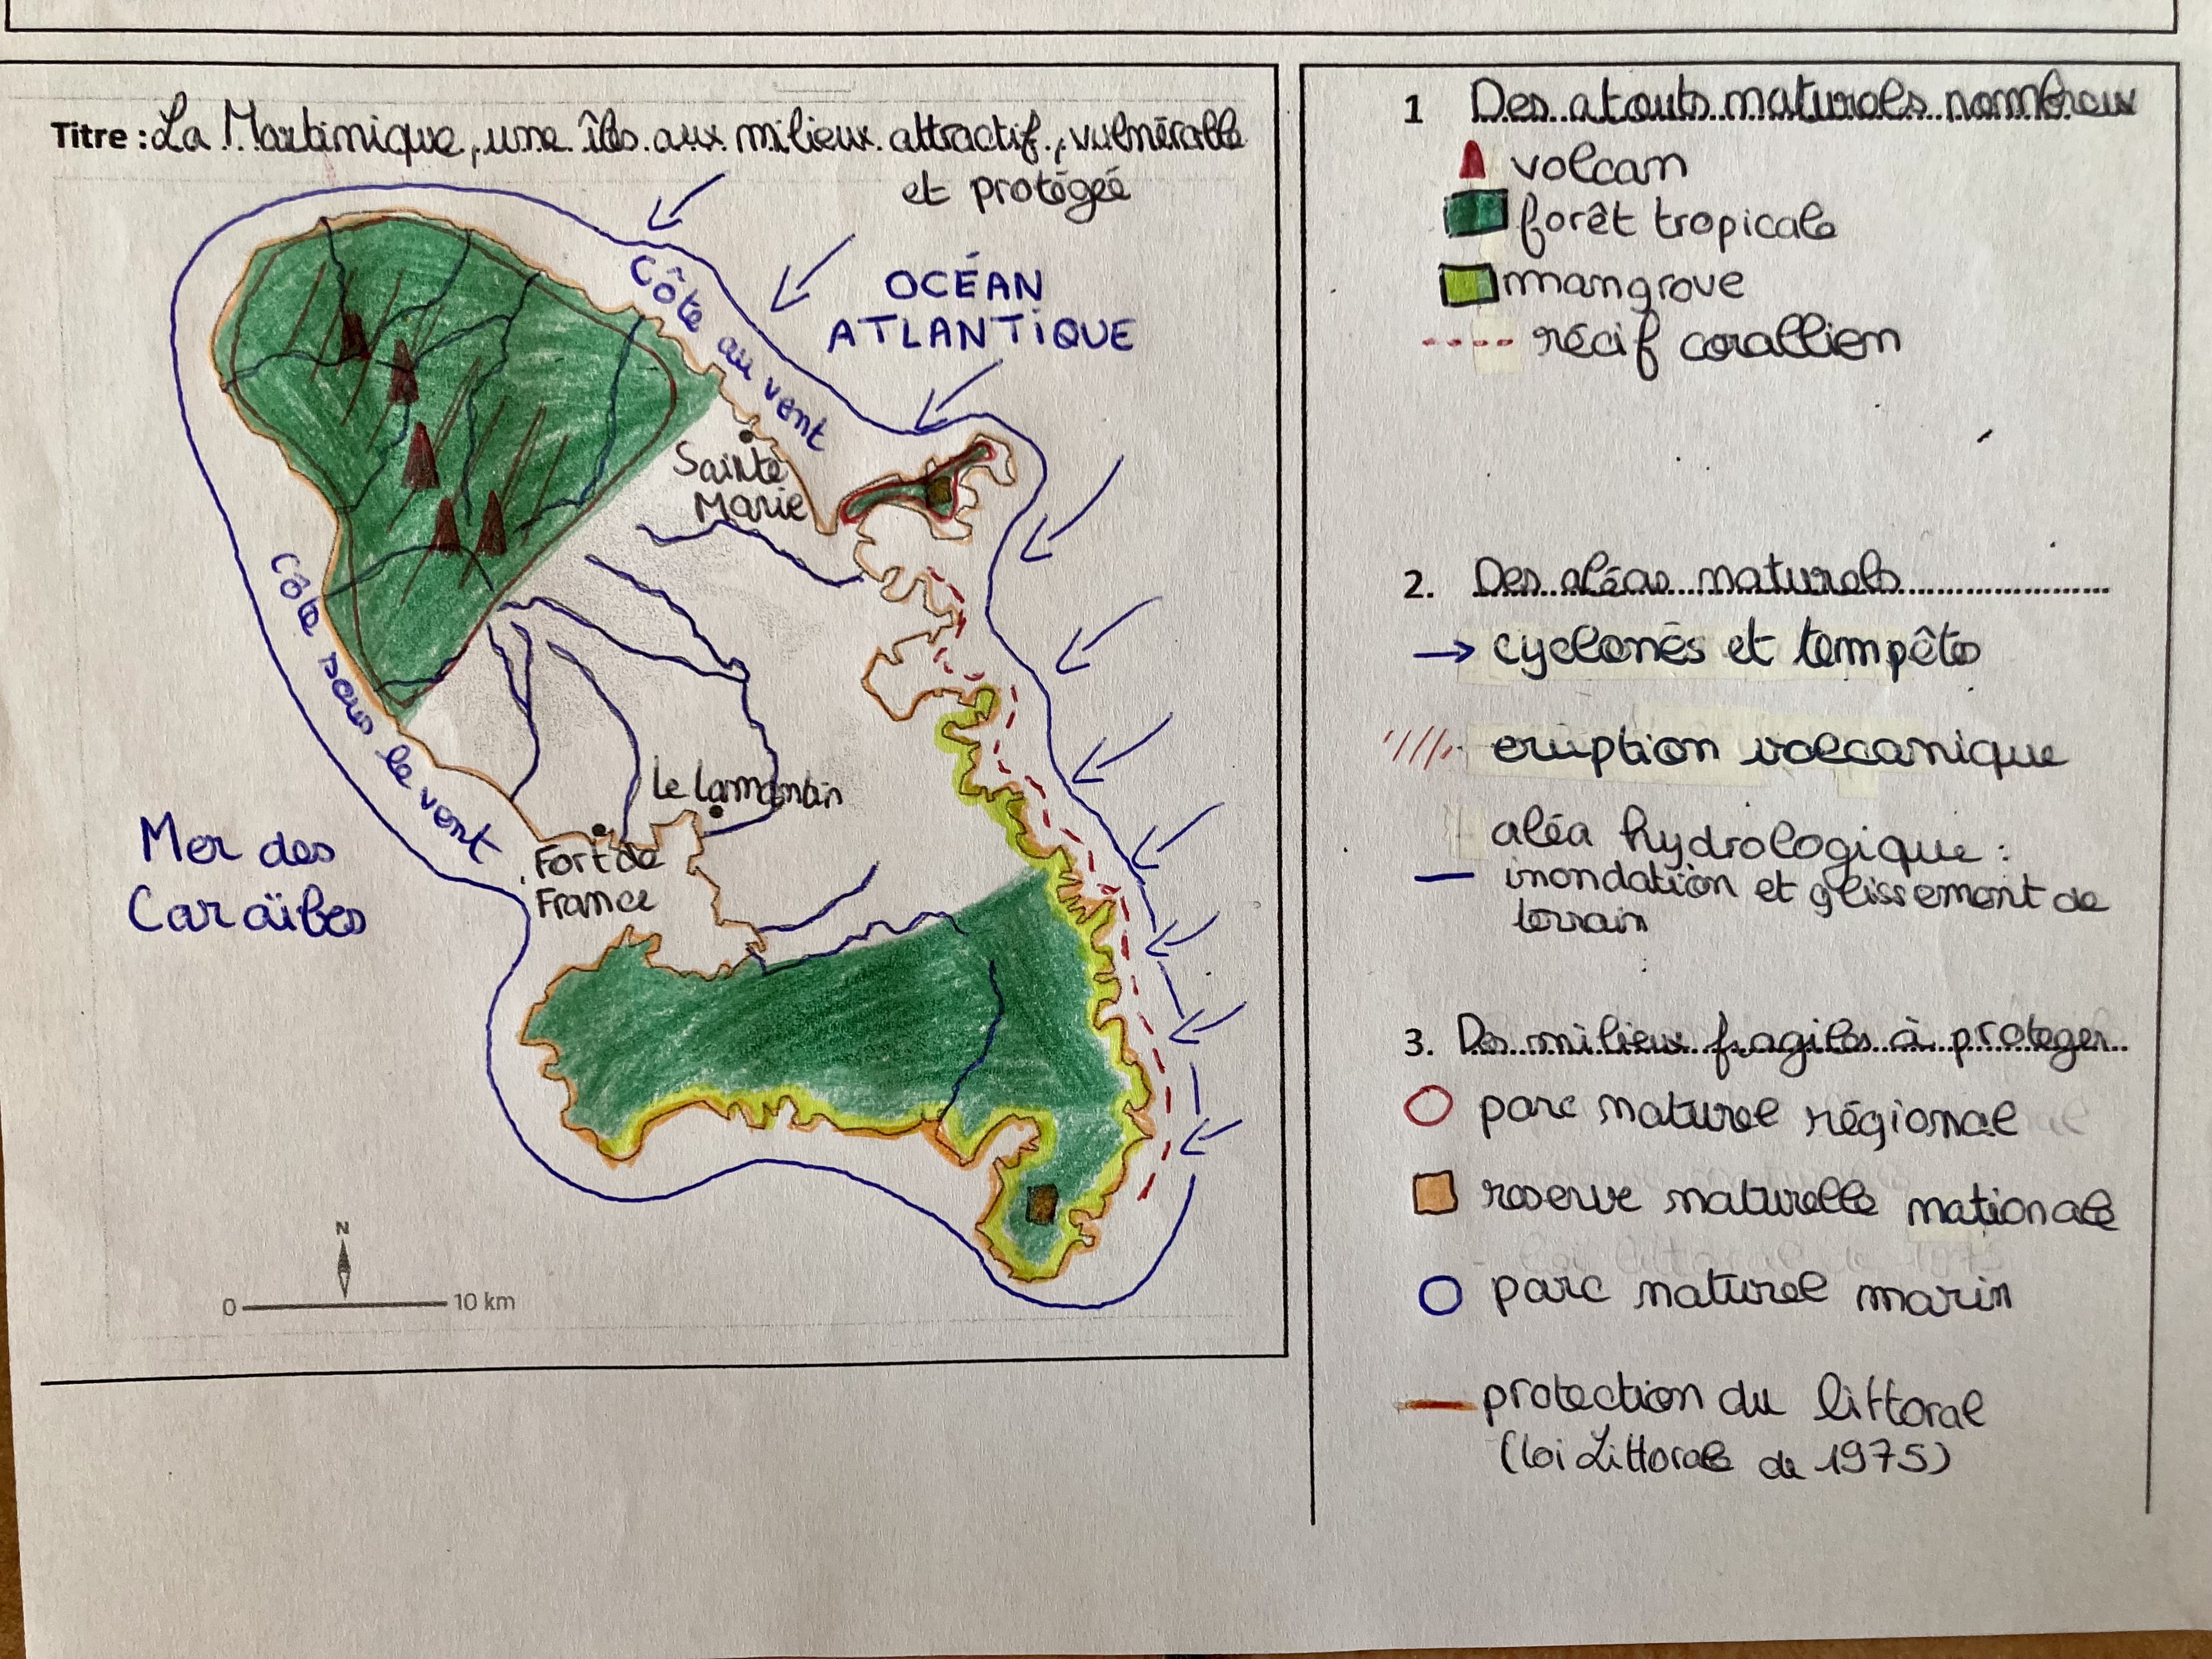 Titre : La Martinique, une île aux milieux attractif, vulnérable
et protégée
OCÉAN
ATLANTIQUE
Côte au vent
Sainte
Marie
Côte sous le vent
Le Lamentin
Mer des
Caraïbes
Fort de
France
N
0 10 km
1 Des atouts naturels nombreux
volcan
forêt tropicale
mangrove
récif corallien
2. Des aléas naturels
cyclones et tempêtes
eruption volcanique
aléa hydrologique :
inondation et glissement de
terrain
3. Des milieux fragiles à proteger
parc naturel régional
reserve naturelle nationale
parc naturel marin
protection du littoral
(loi Littorale de 1975)